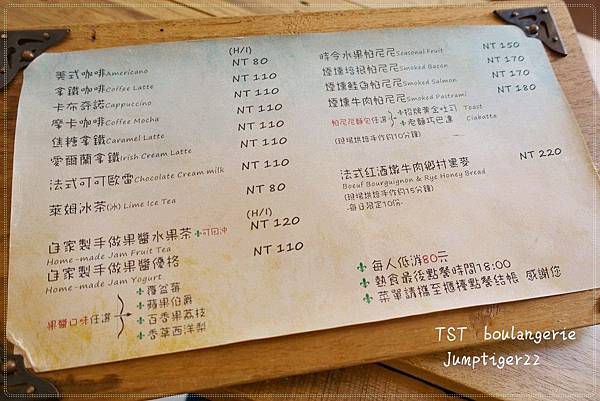 (H/I)
美式咖啡Americano NT 80
拿鐵咖啡Coffee Latte NT 110
卡布奇諾Cappuccino NT 110
摩卡咖啡Coffee Mocha NT 110
焦糖拿鐵Caramel Latte NT 110
愛爾蘭拿鐵Irish Cream Latte NT 110
法式可可歐蕾Chocolate Cream milk NT 110
萊姆冰茶(冰) Lime Ice Tea NT 80
(H/I)
自家製手做果醬水果茶 可回沖 NT 120
Home-made Jam Fruit Tea
自家製手做果醬優格 NT 110
Home-made Jam Yogurt
果醬口味任選
覆盆莓
蘋果伯爵
百香果荔枝
香草西洋梨
時令水果帕尼尼Seasonal Fruit NT 150
煙燻培根帕尼尼Smoked Bacon NT 170
煙燻鮭魚帕尼尼Smoked Salmon NT 170
煙燻牛肉帕尼尼Smoked Pastrami NT 180
帕尼尼麵包任選
招牌黃金吐司 Toast
老麵巧巴達 Ciabatta
(現場烘焙手作約10分鐘)
法式紅酒燉牛肉鄉村裏麥 NT 220
Boeuf Bourguignon & Rye Honey Bread
(現場烘焙手作約15分鐘)
-每日限定10份-
每人低消80元
熱食最後點餐時間18:00
菜單請攜至櫃檯點餐結帳 感謝您
TST boulangerie
Jumptiger22